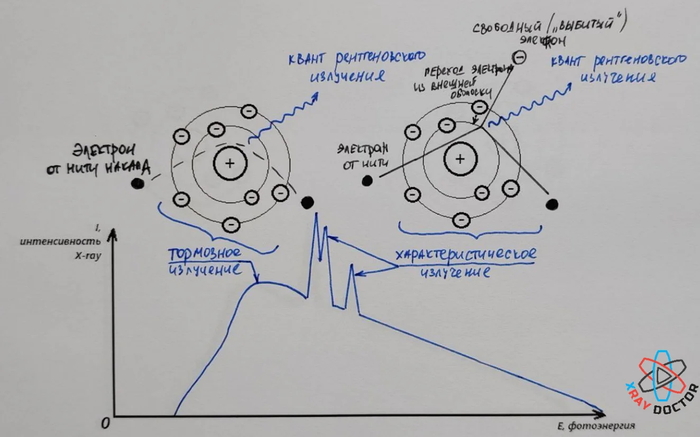 СВОБОДНЫЙ („ВЫБИТЫЙ“)
ЭЛЕКТРОН
КВАНТ РЕНТГЕНОВСКОГО
ИЗЛУЧЕНИЯ
КВАНТ РЕНТГЕНОВСКОГО
ИЗЛУЧЕНИЯ
ПЕРЕХОД ЭЛЕКТРОНА
ИЗ ВНЕШНЕЙ
ОБОЛОЧКИ
ЭЛЕКТРОН
ОТ НИТИ НАКАЛА
ЭЛЕКТРОН
ОТ НИТИ
I,
интенсивность
X-ray
ТОРМОЗНОЕ
ИЗЛУЧЕНИЕ
ХАРАКТЕРИСТИЧЕСКОЕ
ИЗЛУЧЕНИЕ
0
E, фотоэнергия
XRAY DOCTOR